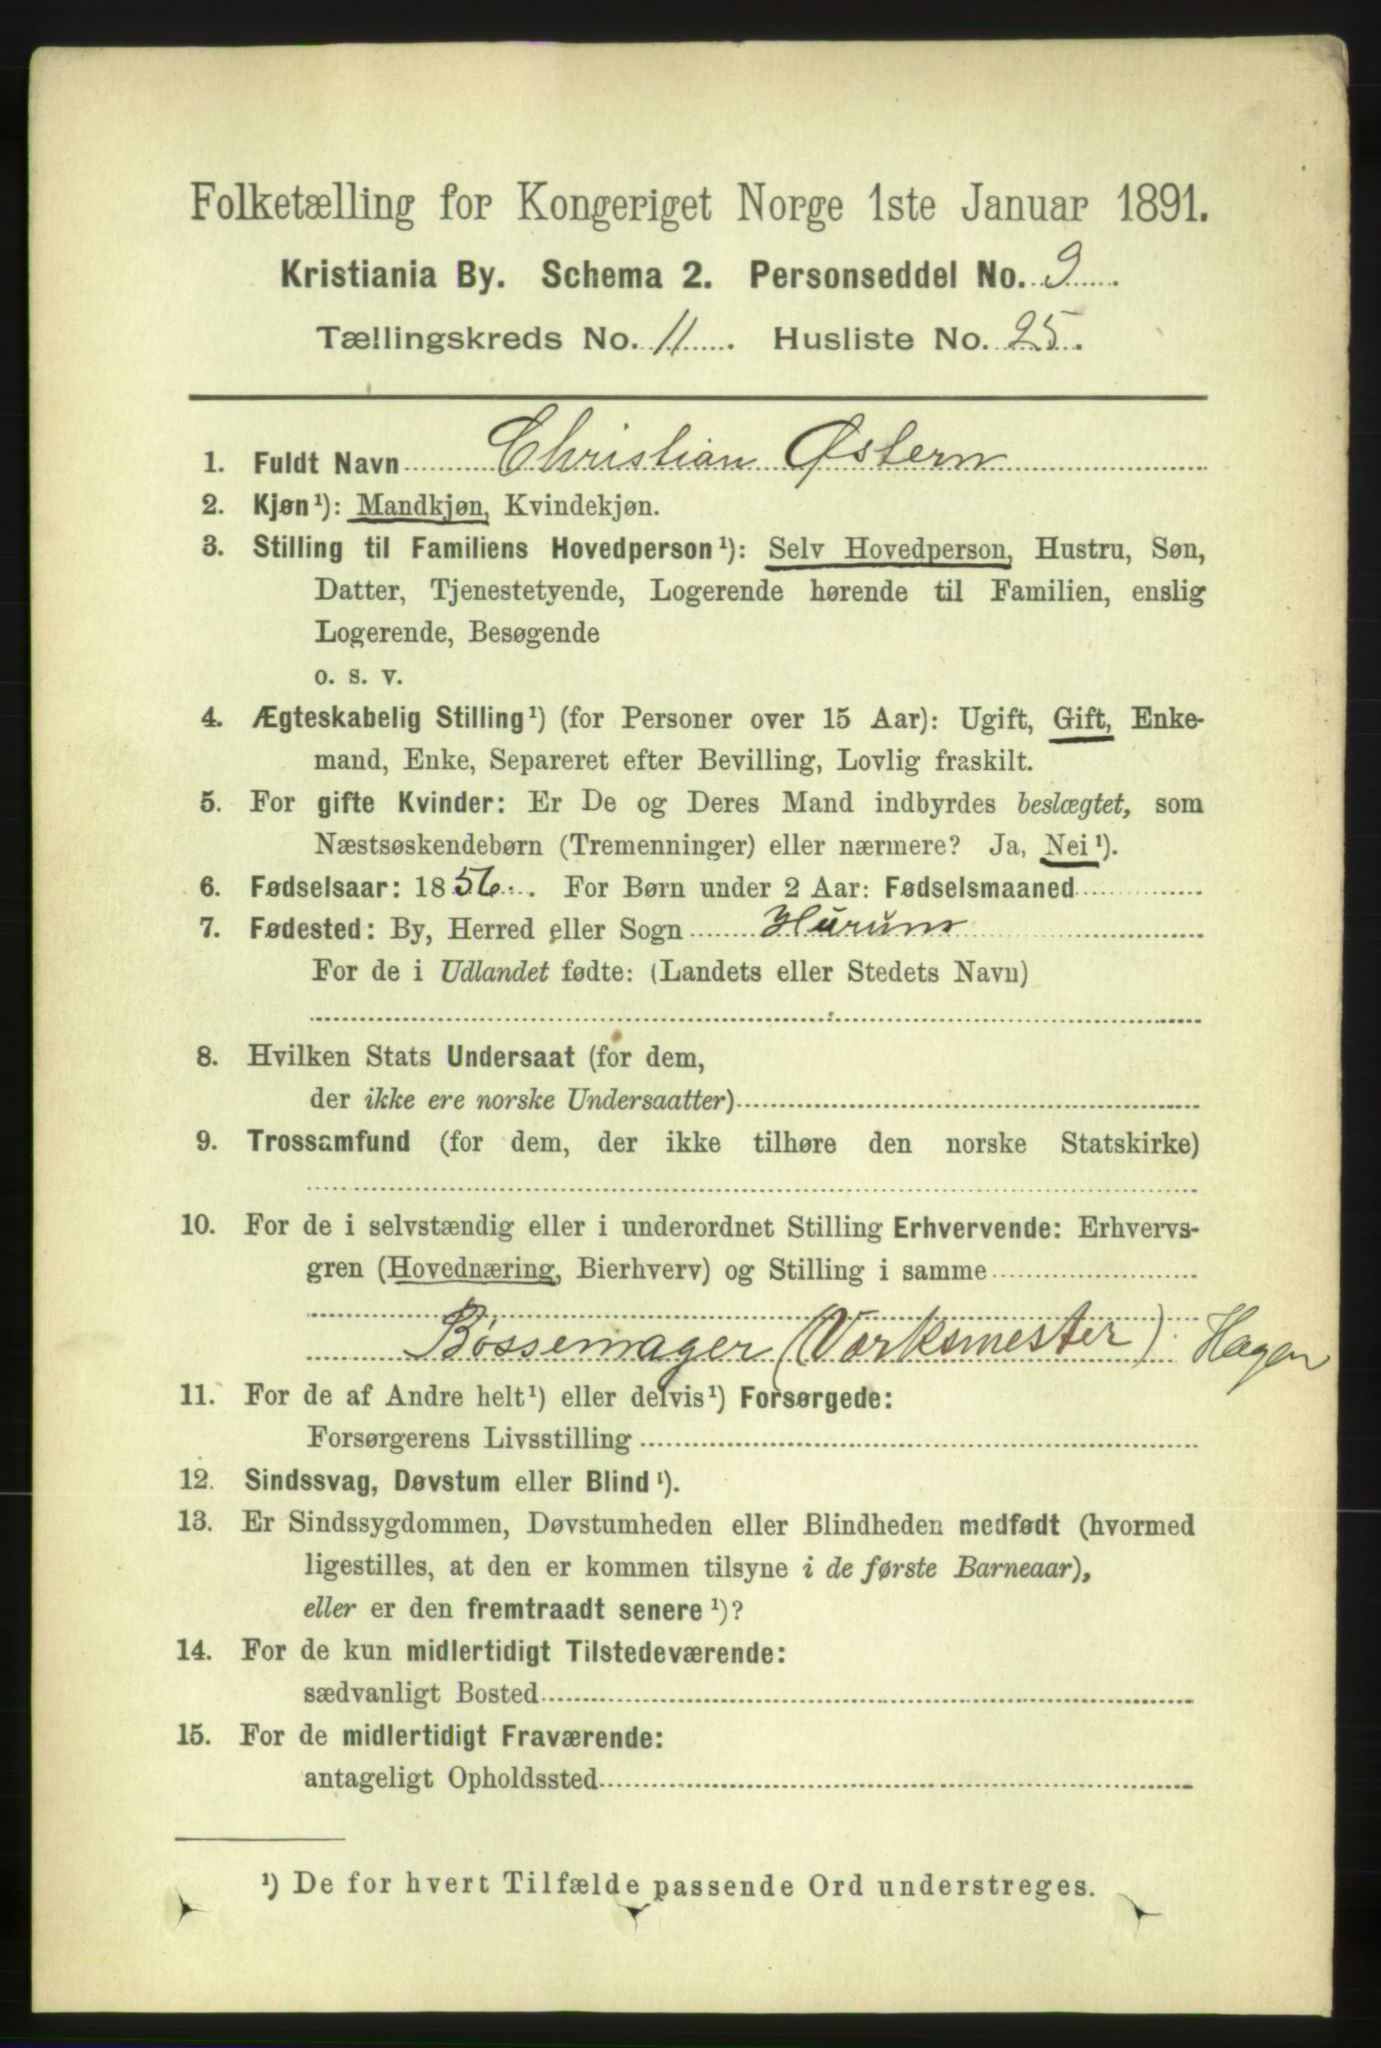 Folketælling for Kongeriget Norge 1ste Januar 1891.
Kristiania By. Schema 2. Personseddel No. 9
Tællingskreds No. 11. Husliste No. 25.
1. Fuldt Navn Christian Østern
2. Kjøn¹): Mandkjøn, Kvindekjøn.
3. Stilling til Familiens Hovedperson¹): Selv Hovedperson, Hustru, Søn,
Datter, Tjenestetyende, Logerende hørende til Familien, enslig
Logerende, Besøgende
o. s. v.
4. Ægteskabelig Stilling¹) (for Personer over 15 Aar): Ugift, Gift, Enke-
mand, Enke, Separeret efter Bevilling, Lovlig fraskilt.
5. For gifte Kvinder: Er De og Deres Mand indbyrdes beslægtet, som
Næstsøskendebørn (Tremenninger) eller nærmere? Ja, Nei¹).
6. Fødselsaar: 1856. For Børn under 2 Aar: Fødselsmaaned
7. Fødested: By, Herred eller Sogn Hurum
For de i Udlandet fødte: (Landets eller Stedets Navn)
8. Hvilken Stats Undersaat (for dem,
der ikke ere norske Undersaatter)
9. Trossamfund (for dem, der ikke tilhøre den norske Statskirke)
10. For de i selvstændig eller i underordnet Stilling Erhvervende: Erhvervs-
gren (Hovednæring, Bierhverv) og Stilling i samme
Bøssemager (Værksmester) Hagen
11. For de af Andre helt¹) eller delvis¹) Forsørgede:
Forsørgerens Livsstilling
12. Sindssvag, Døvstum eller Blind¹).
13. Er Sindssygdommen, Døvstumheden eller Blindheden medfødt (hvormed
ligestilles, at den er kommen tilsyne i de første Barneaar),
eller er den fremtraadt senere¹)?
14. For de kun midlertidigt Tilstedeværende:
sædvanligt Bosted
15. For de midlertidigt Fraværende:
antageligt Opholdssted
¹) De for hvert Tilfælde passende Ord understreges.